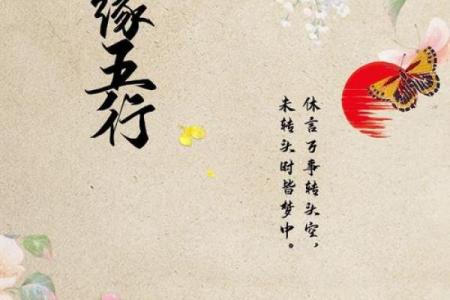 缘五行
休言万事转头空，
未转头时皆梦中。